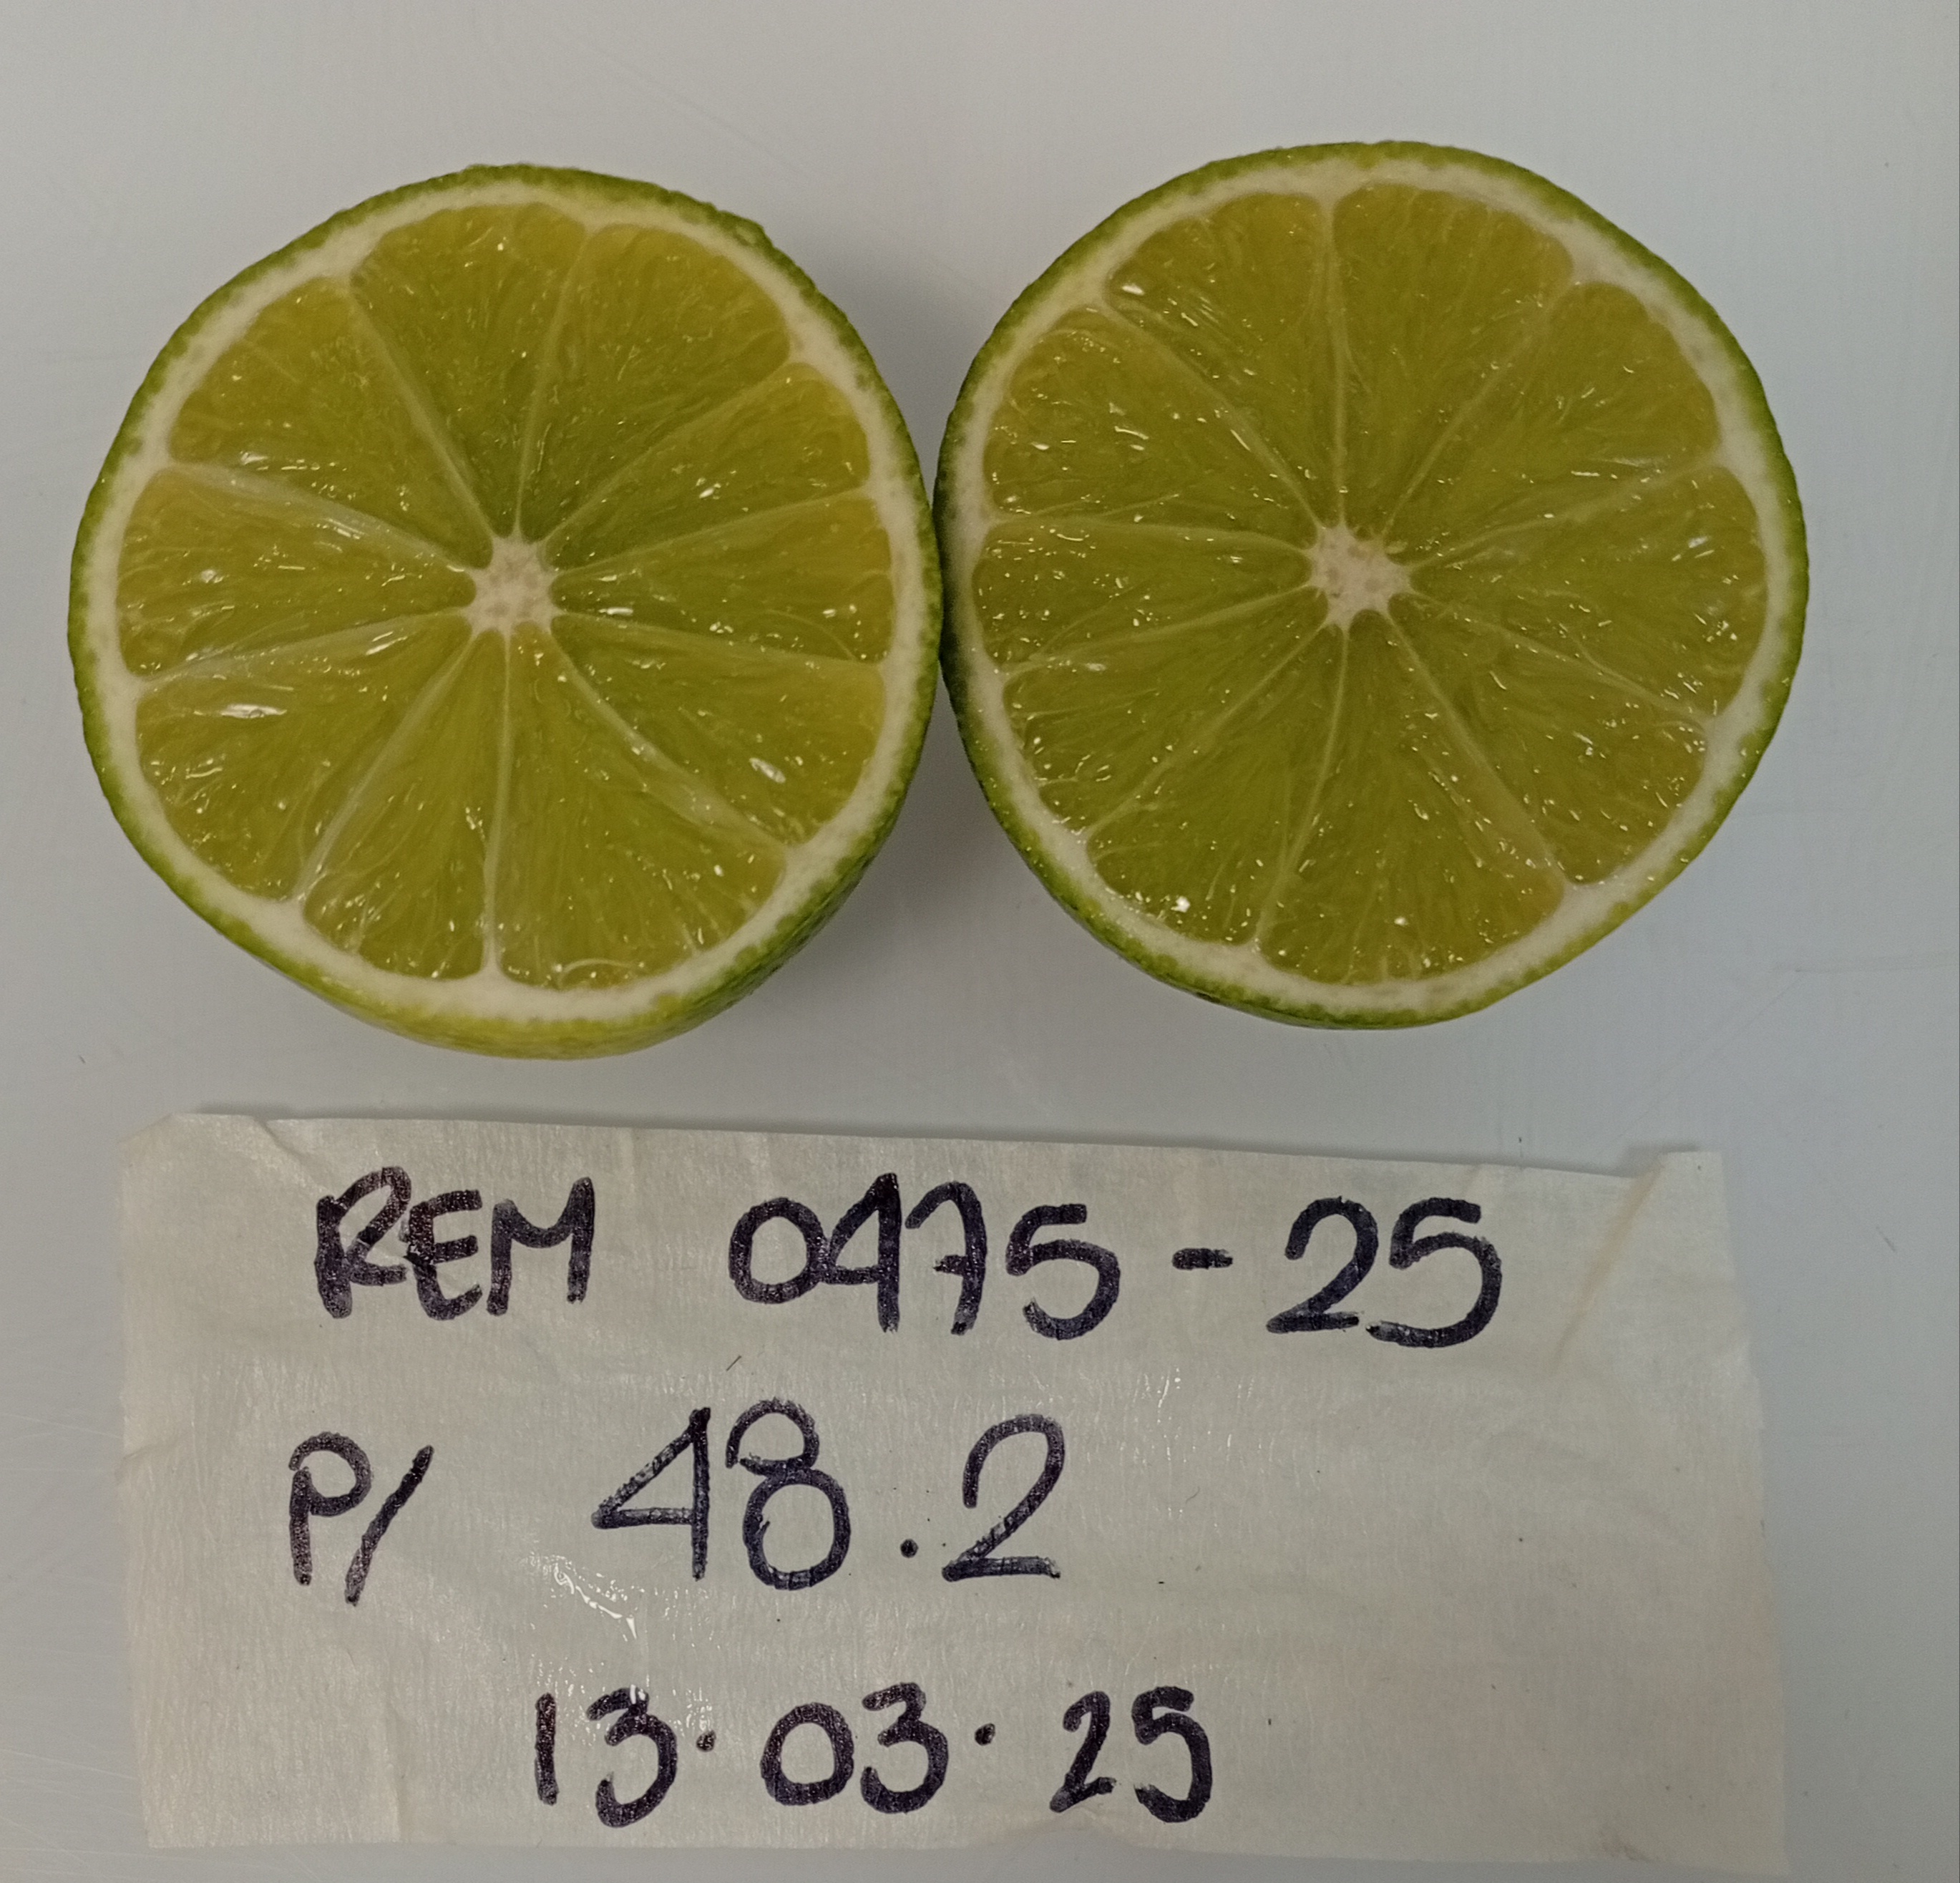 REM 0475-25
P/ 48.2
13.03.25